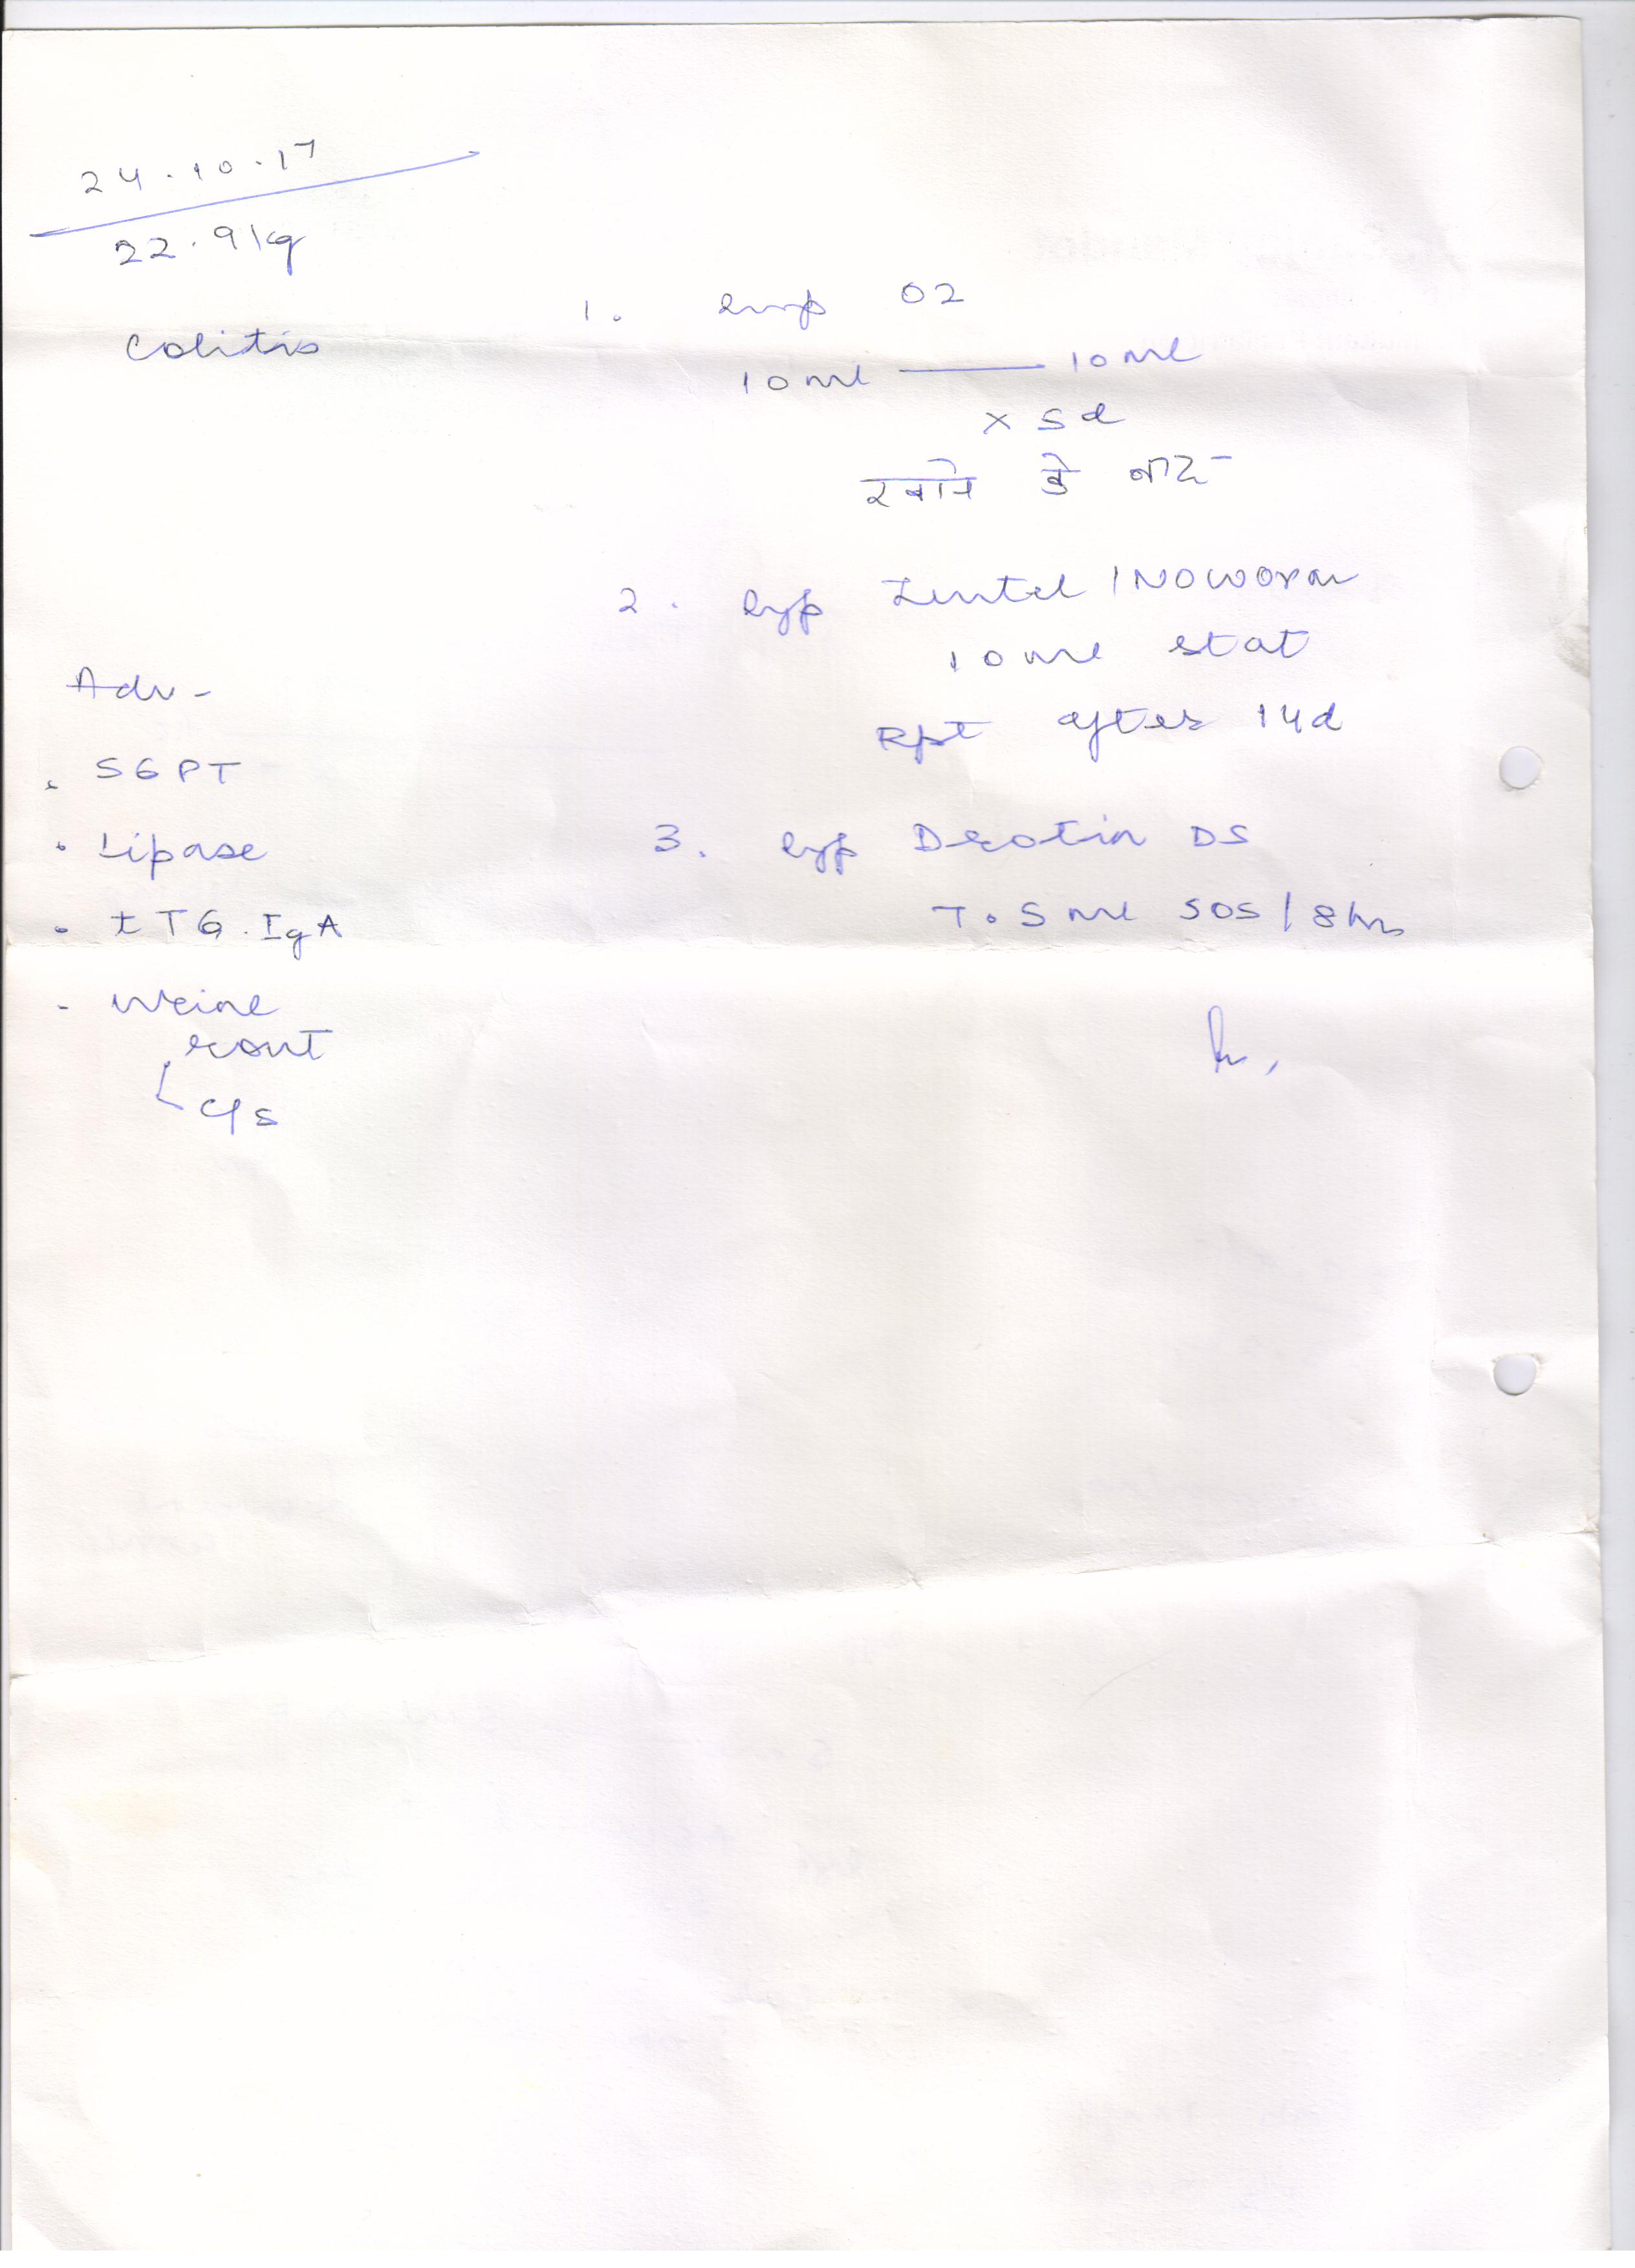 24.10.17
22.9kg
Colitis
1. Syp O2
10ml — 10ml
x 5d
खाने के बाद
2. Syp Zentel / NOWORM
10ml stat
Rpt after 14d
3. Syp Drotin DS
7.5ml SOS / 8hrs
Adv -
SGPT
Lipase
tTG. IgA
Urine
rout
C/s